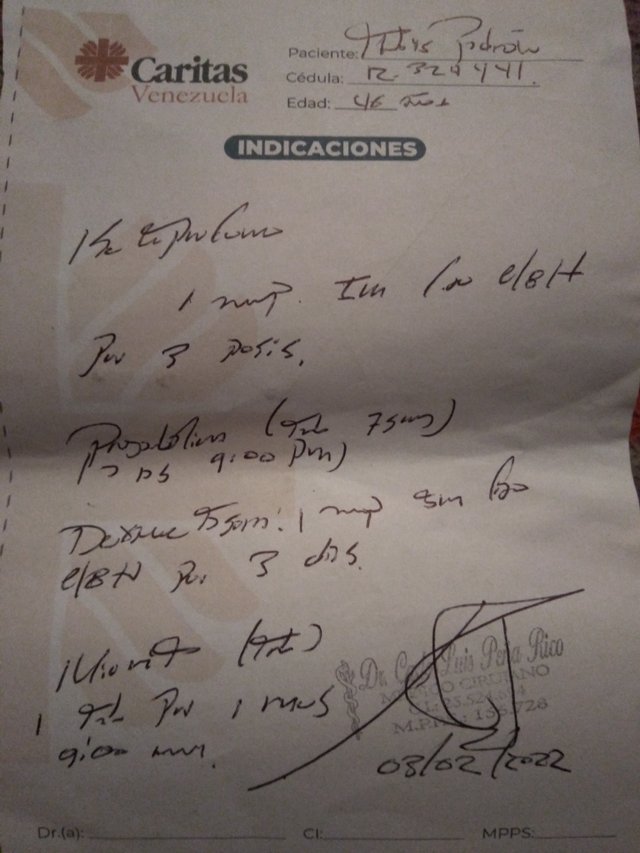 Caritas
Venezuela
Paciente: Padrón
Cédula: 12.324441.
Edad: 46 años
INDICACIONES
Ketoprofeno
1 amp. Im c/8H
Por 3 Dosis.
Pregabalina (Tab 75mg)
9:00 pm)
1 amp Im
c/8H Por 3 días.
(Tab)
1 Tab Por 1 mes
9:00 am.
Dr. Luis Peña Rico
MÉDICO CIRUJANO
03/02/2022
Dr.(a):
CI:
MPPS: